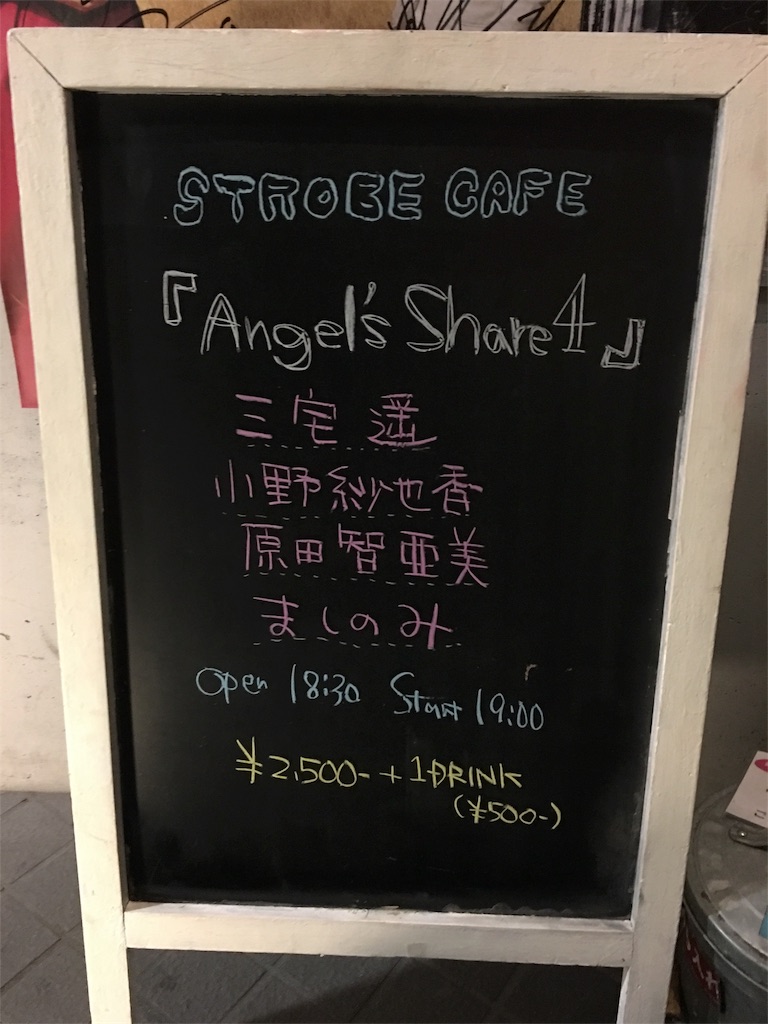 STROBE CAFE
『Angel's Share4』
三宅 遥
小野紗也香
原田智亜美
ましのみ
Open 18:30 Start 19:00
¥2.500- + 1DRINK
(¥500-)